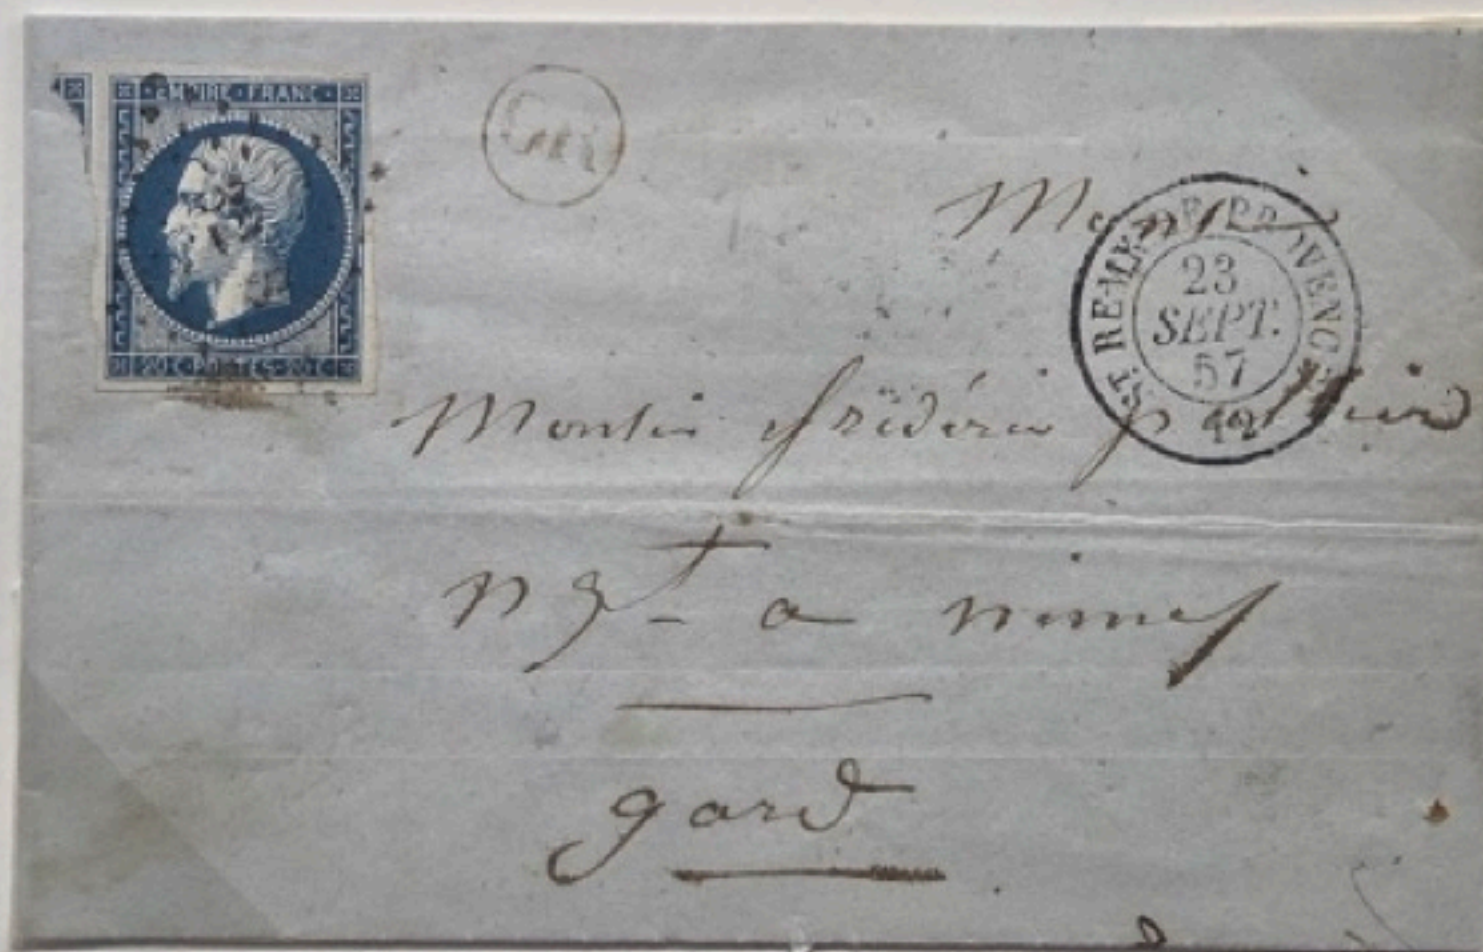 EMPIRE · FRANC ·
20 C · POSTES · 20 C
OR
ST. REMY-DE-PROVENCE
23
SEPT.
57
12
Monsieur
frédéric
ngt - a nimes
gard